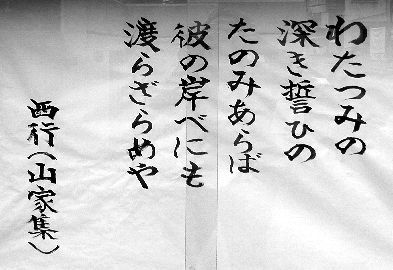 わたつみの
深き誓ひの
たのみあらば
彼の岸べにも
渡らざらめや
西行(山家集)